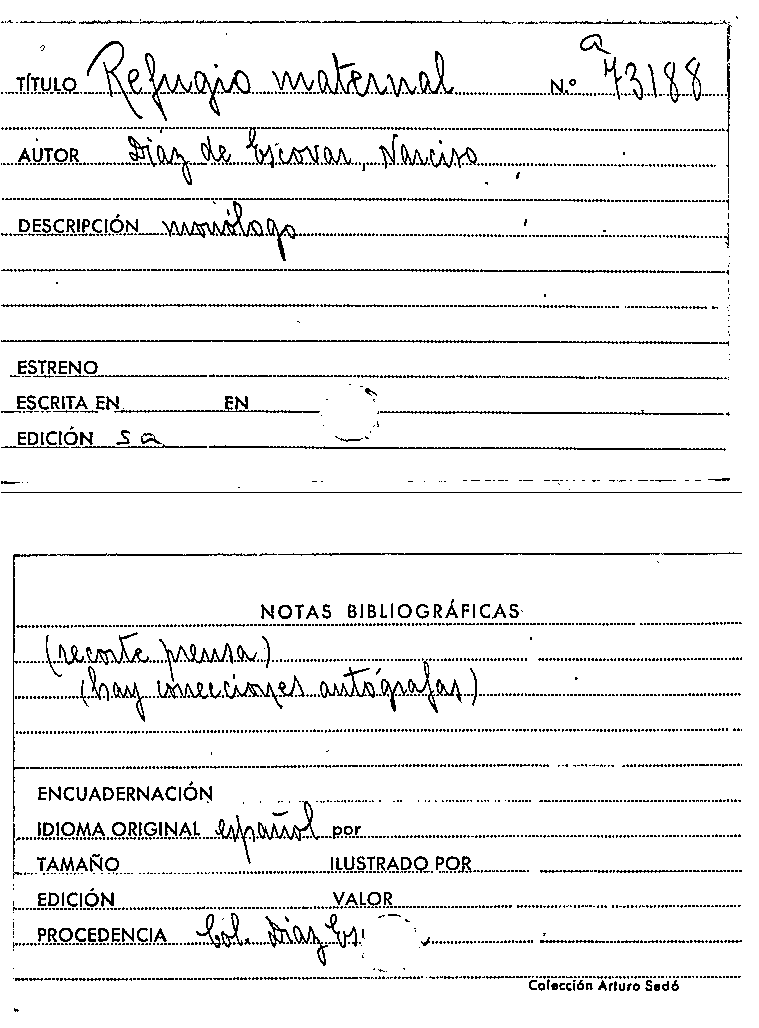 a
TÍTULO Refugio maternal N.º 73188
AUTOR Díaz de Escovar, Narciso
DESCRIPCIÓN monólogo
ESTRENO
ESCRITA EN EN
EDICIÓN s a
NOTAS BIBLIOGRÁFICAS
(recorte prensa)
(hay correcciones autógrafas)
ENCUADERNACIÓN
IDIOMA ORIGINAL español por
TAMAÑO ILUSTRADO POR
EDICIÓN VALOR
PROCEDENCIA Col. Díaz Es.
Colección Arturo Sedó